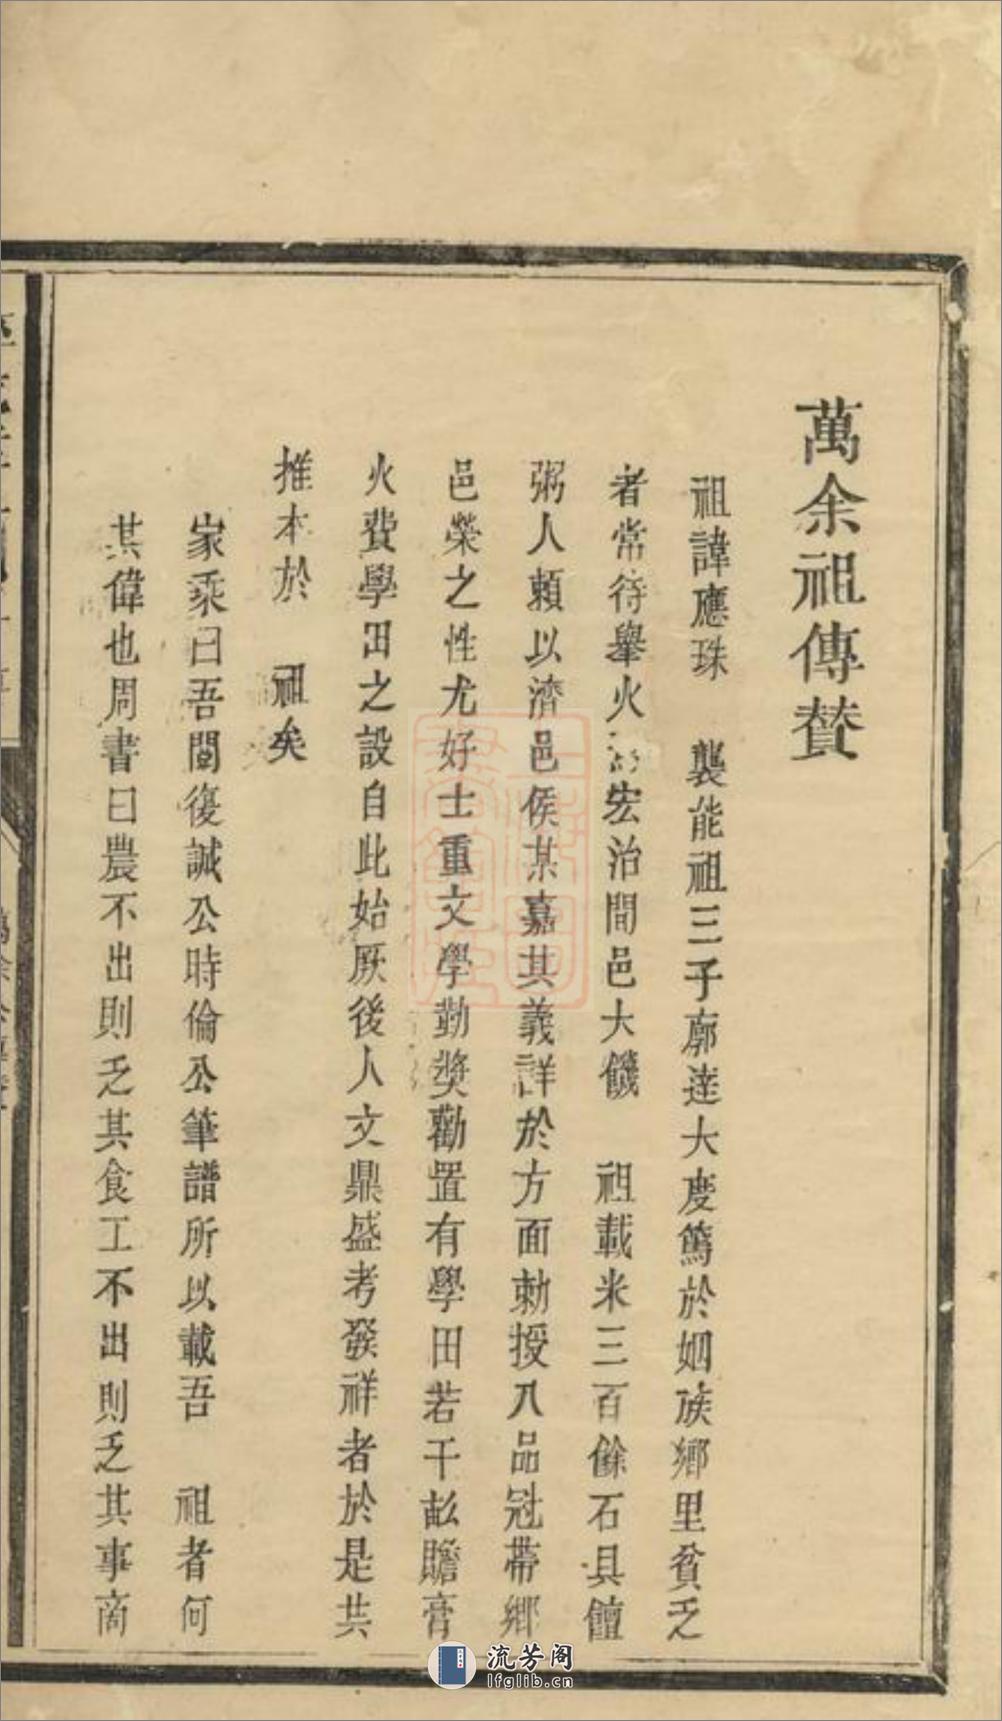 萬余祖傳贊
祖諱應珠　襲能祖三子廓達大度篤於姻族鄉里貧乏
者常待舉火宏治間邑大饑　祖載米三百餘石具饘
粥人賴以濟邑侯某嘉其義詳於方面勅授八品冠帶鄉
邑榮之性尤好士重文學勤獎勸置有學田若干畝贍膏
火費學田之設自此始厥後人文鼎盛考發祥者於是共
推本於　祖矣
家乘曰吾閱復誠公時倫公筆譜所以載吾　祖者何
其偉也周書曰農不出則乏其食工不出則乏其事商
流芳阁
lfglib.cn